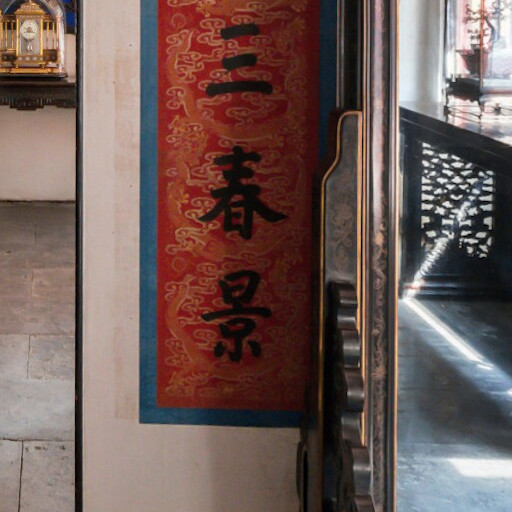 三春景